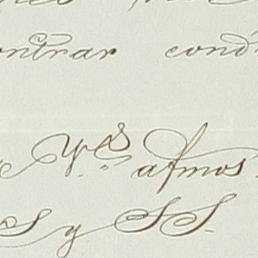 ontrar cond
Vds afmos.
S y SS.